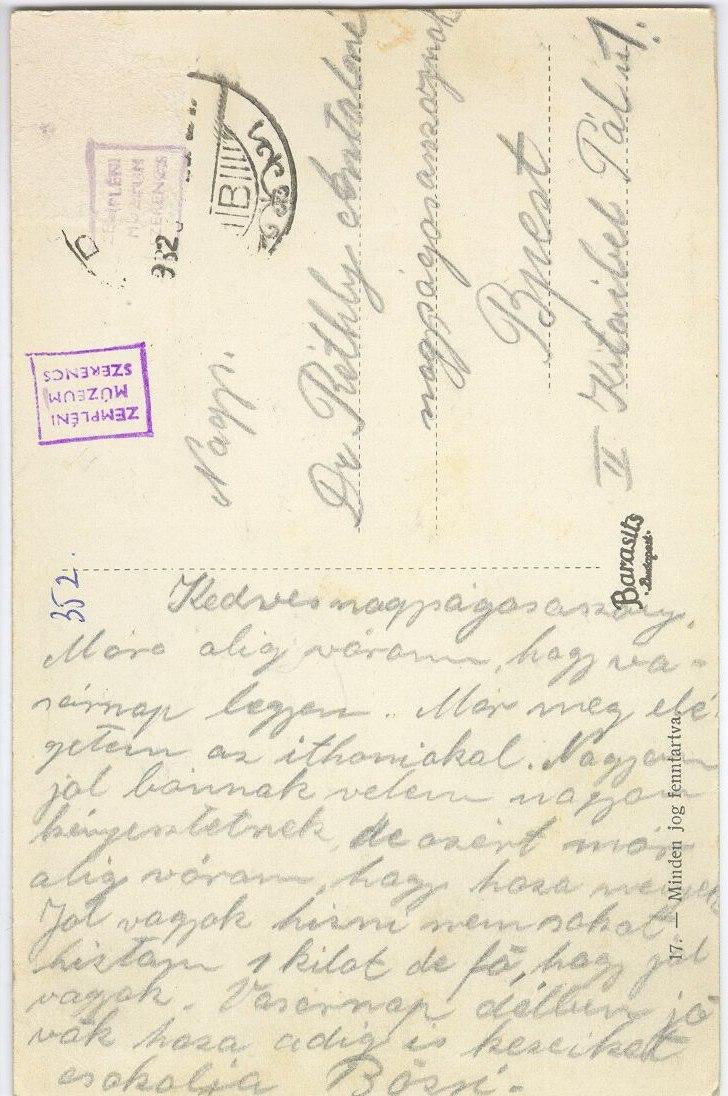 ZEMPLÉNI
MÚZEUM
SZERENCS
ZEMPLÉNI
MÚZEUM
SZERENCS
932
B
352.
Nagys.
Dr Réthly Antalné
nagyságosasszonynak
Bpest
II Kitaibel Pál u 1.
Barasits
Budapest
17. — Minden jog fenntartva.
Kedves nagyságosasszony,
Móra alig várom, hogy va-
sárnap legyen. Már meg elé
getem az ithoniakal. Nagyon
jol bánnak velem nagyon
kényeztetnek, de azért már
alig várom, hogy haza menjek
Jol vagyok hisni nem sokat
histam 1 kilot de fő, hogy jol
vagyok. Vasárnap délben jö
vök haza adig is kezeiket
csokolja Bözsi.